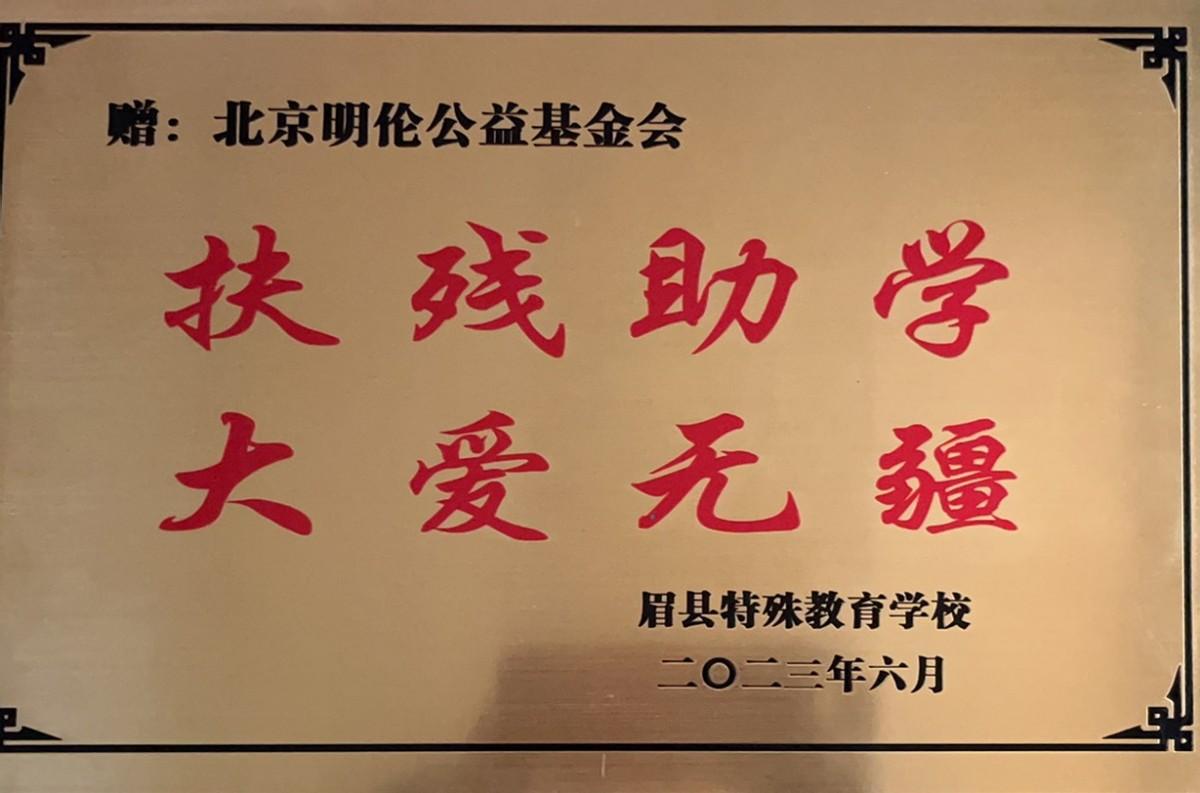 赠：北京明伦公益基金会
扶残助学
大爱无疆
眉县特殊教育学校
二〇二三年六月